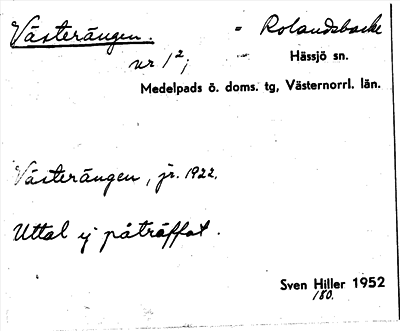 Västerängen. = Rolandsbacke
nr 1², Hässjö sn.
Medelpads ö. doms. tg, Västernorrl. län.
Västerängen, jr. 1922.
Uttal ej påträffat.
Sven Hiller 1952
180.